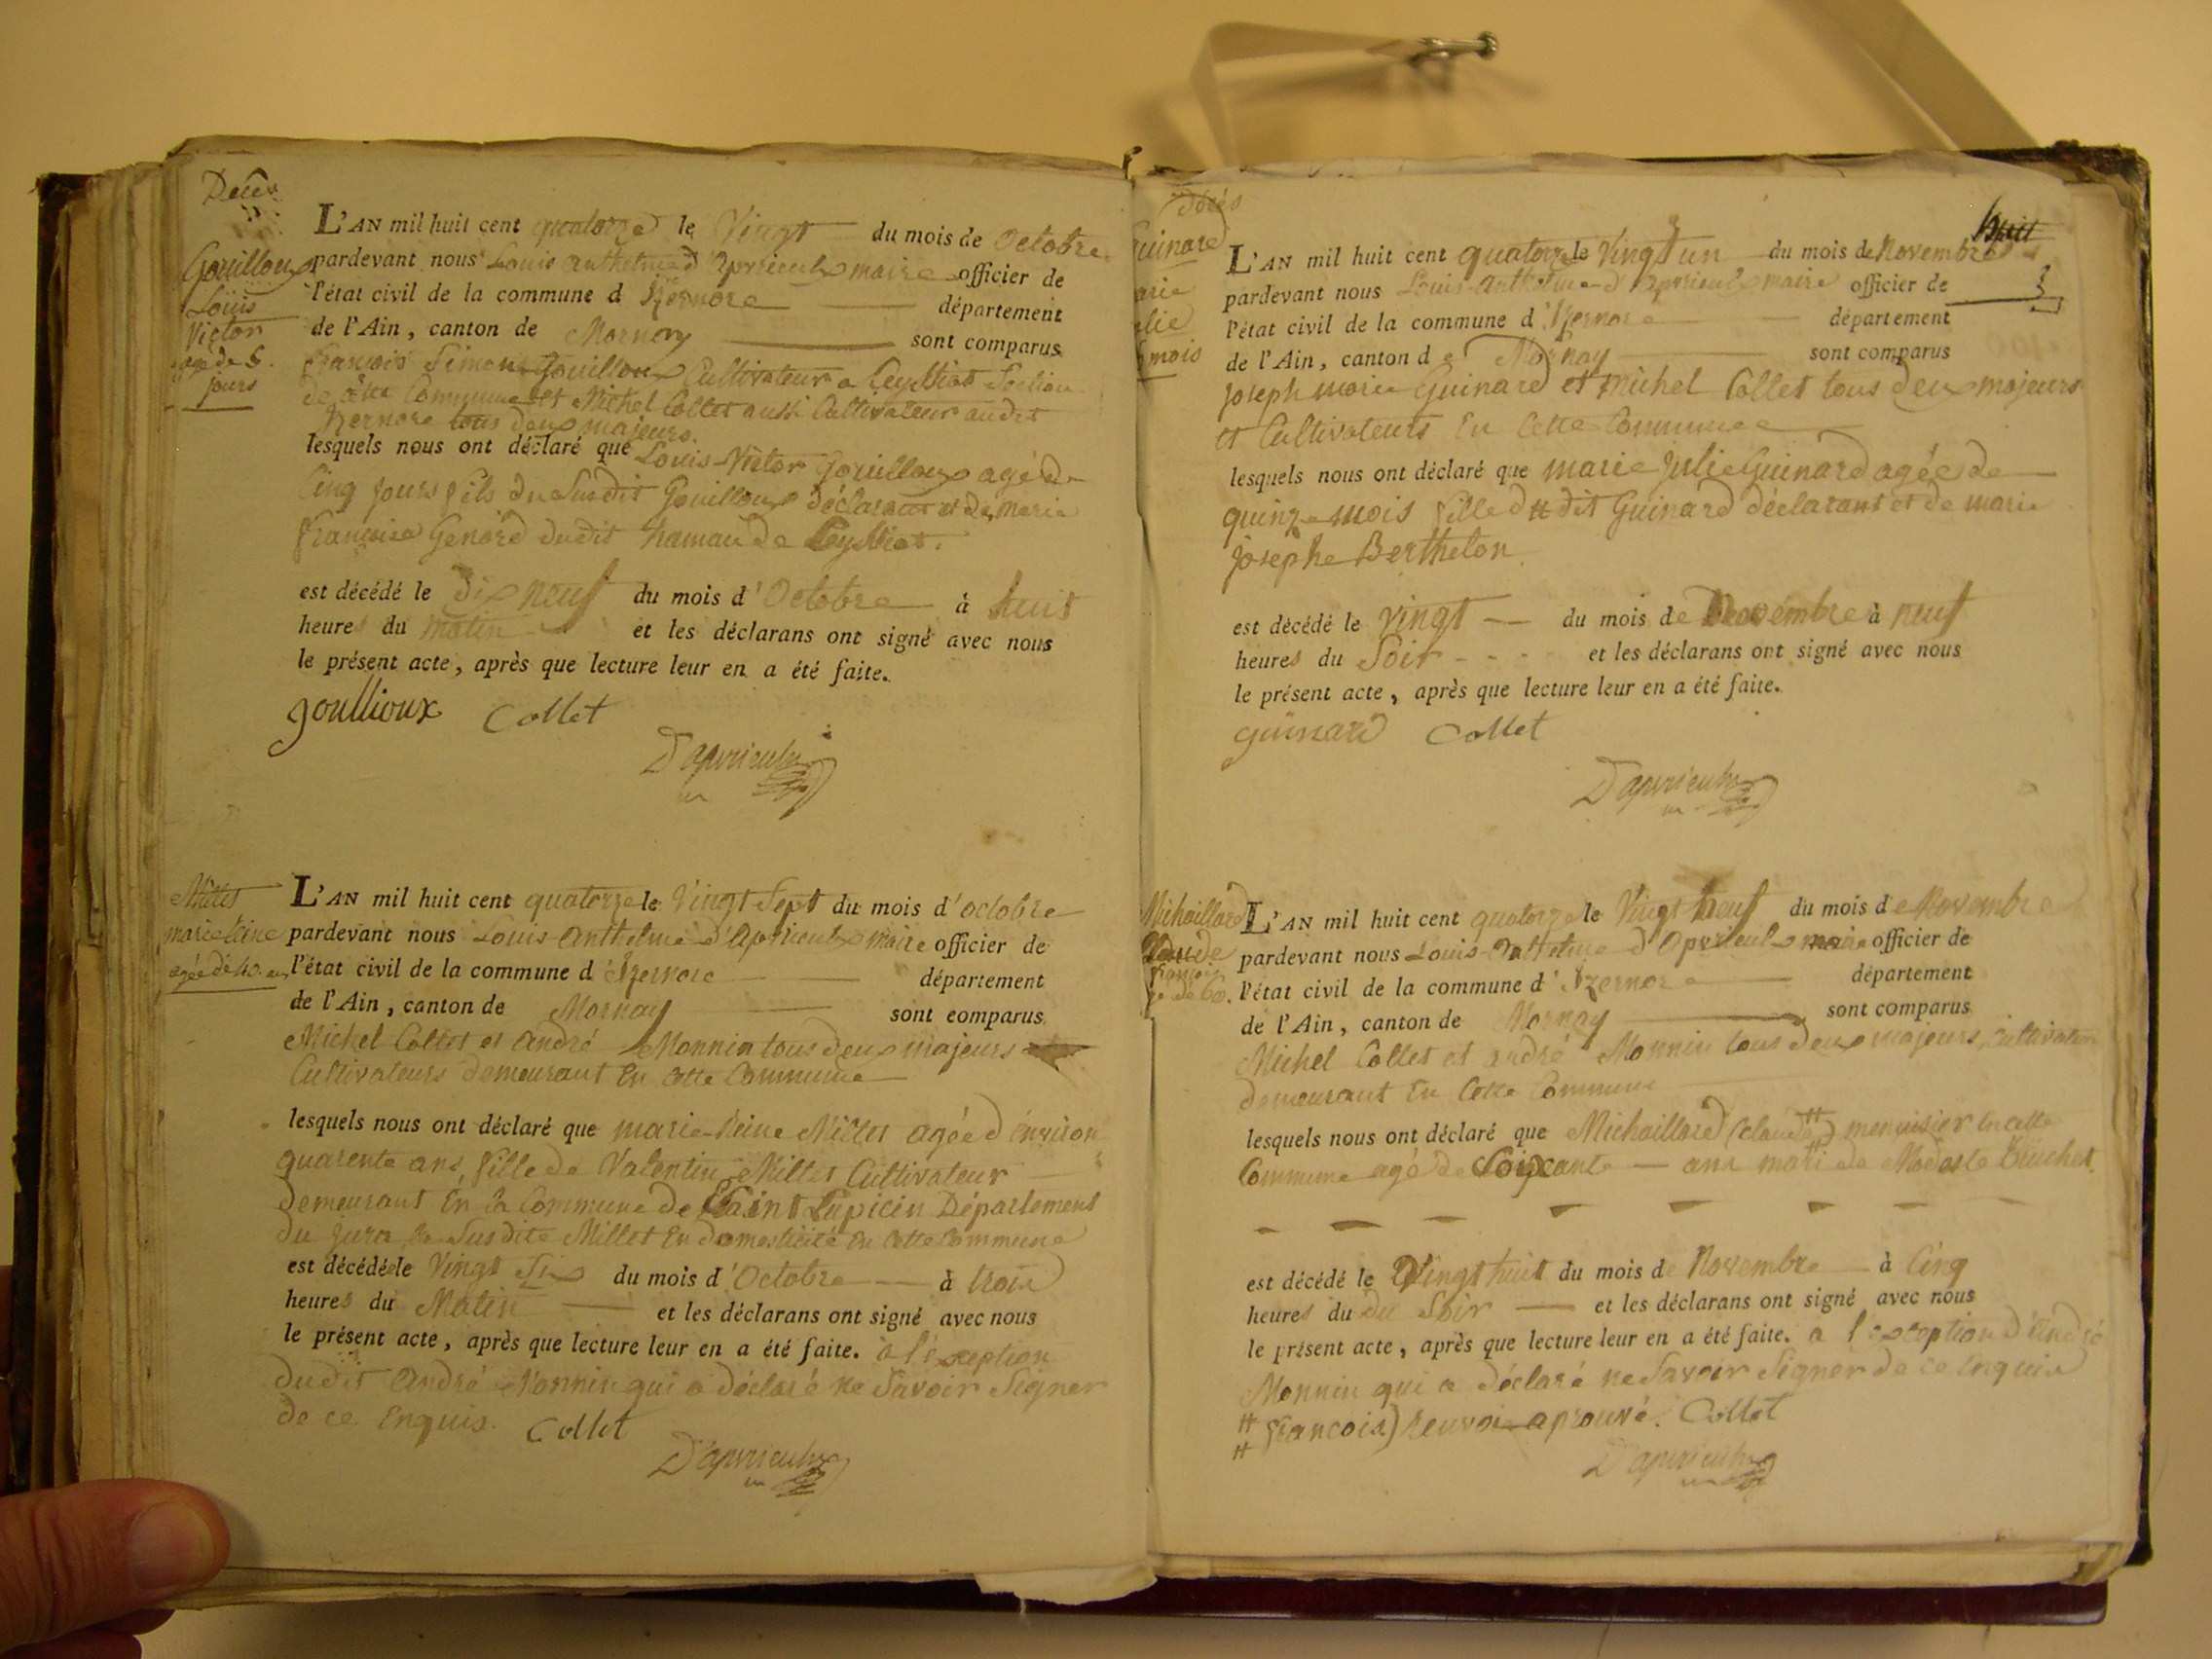 Décès
Gouilloux
Louis
Victor
agé de 5.
jours
L'AN mil huit cent quatorze le Vingt du mois de Octobre
pardevant nous Louis anthelme d'apvrieulx maire officier de
l'état civil de la commune d'Izernore département
de l'Ain, canton de Mornay sont comparus
François Simon Gouilloux Cultivateur a Ceyssiat Section
de cette Commune et Michel Collet aussi Cultivateur audit
Izernore tous deux majeurs.
lesquels nous ont déclaré que Louis-Victor Gouilloux agé de
Cinq jours fils du Susdit Gouilloux déclarant et de marie
françoise Genard dudit hamau de Ceyssiat.
est décédé le dix neuf du mois d'Octobre à huit
heures du matin et les déclarans ont signé avec nous
le présent acte, après que lecture leur en a été faite.
goullioux Collet
D'apvrieulx
Millet
marie Reine
agée de 40. ans
L'AN mil huit cent quatorze le Vingt Sept du mois d'octobre
pardevant nous Louis-Anthelme d'Apvrieulx maire officier de
l'état civil de la commune d'Izernore département
de l'Ain, canton de Mornay sont comparus
Michel Collet et André Monnin tous deux majeurs
Cultivateurs demeurant En Cette Commune
lesquels nous ont déclaré que marie-Reine Millet agée d'environ
quarente ans, fille de Valentin Millet Cultivateur
demeurant En la Commune de Saint Lupicin Département
du Jura la Susdite Millet En domesticité En Cette Commune
est décédée le Vingt Six du mois d'Octobre à trois
heures du Matin et les déclarans ont signé avec nous
le présent acte, après que lecture leur en a été faite. à l'exception
dudit André Monnin qui a déclaré ne Savoir Signer
de ce Enquis. Collet
D'apvrieulx
décés
huit
Guinard
marie
julie
mois
L'AN mil huit cent quatorze le Vingt un du mois de Novembre
pardevant nous Louis-Anthelme d'Apvrieulx maire officier de
l'état civil de la commune d'Izernore département
de l'Ain, canton de Mornay sont comparus
Joseph marie Guinard et Michel Collet tous deux majeurs
et Cultivateurs En Cette Commune
lesquels nous ont déclaré que marie Julie Guinard agée de
quinze mois fille dudit Guinard déclarant et de marie
josephe Berthelon.
est décédé le vingt du mois de Novembre à neuf
heures du Soir et les déclarans ont signé avec nous
le présent acte, après que lecture leur en a été faite.
guinard Collet
D'apvrieulx
Michaillard
Claude
françois
agé de 60.
L'AN mil huit cent quatorze le Vingt neuf du mois de Novembre
pardevant nous Louis-Anthelme d'Apvrieulx maire officier de
l'état civil de la commune d'Izernore département
de l'Ain, canton de Mornay sont comparus
Michel Collet et andré Monnin tous deux majeurs, Cultivateurs
demeurant En Cette Commune
lesquels nous ont déclaré que Michaillard (claude # menuisier En cette
Commune agé de Soixante ans mari de Modeste
est décédé le Vingt huit du mois de Novembre à Cinq
heures du du Soir et les déclarans ont signé avec nous
le présent acte, après que lecture leur en a été faite. a l'exception d'André
Monnin qui a déclaré ne Savoir Signer de ce Enquis
# françois) renvoi aprouvé. Collet
#
D'apvrieulx